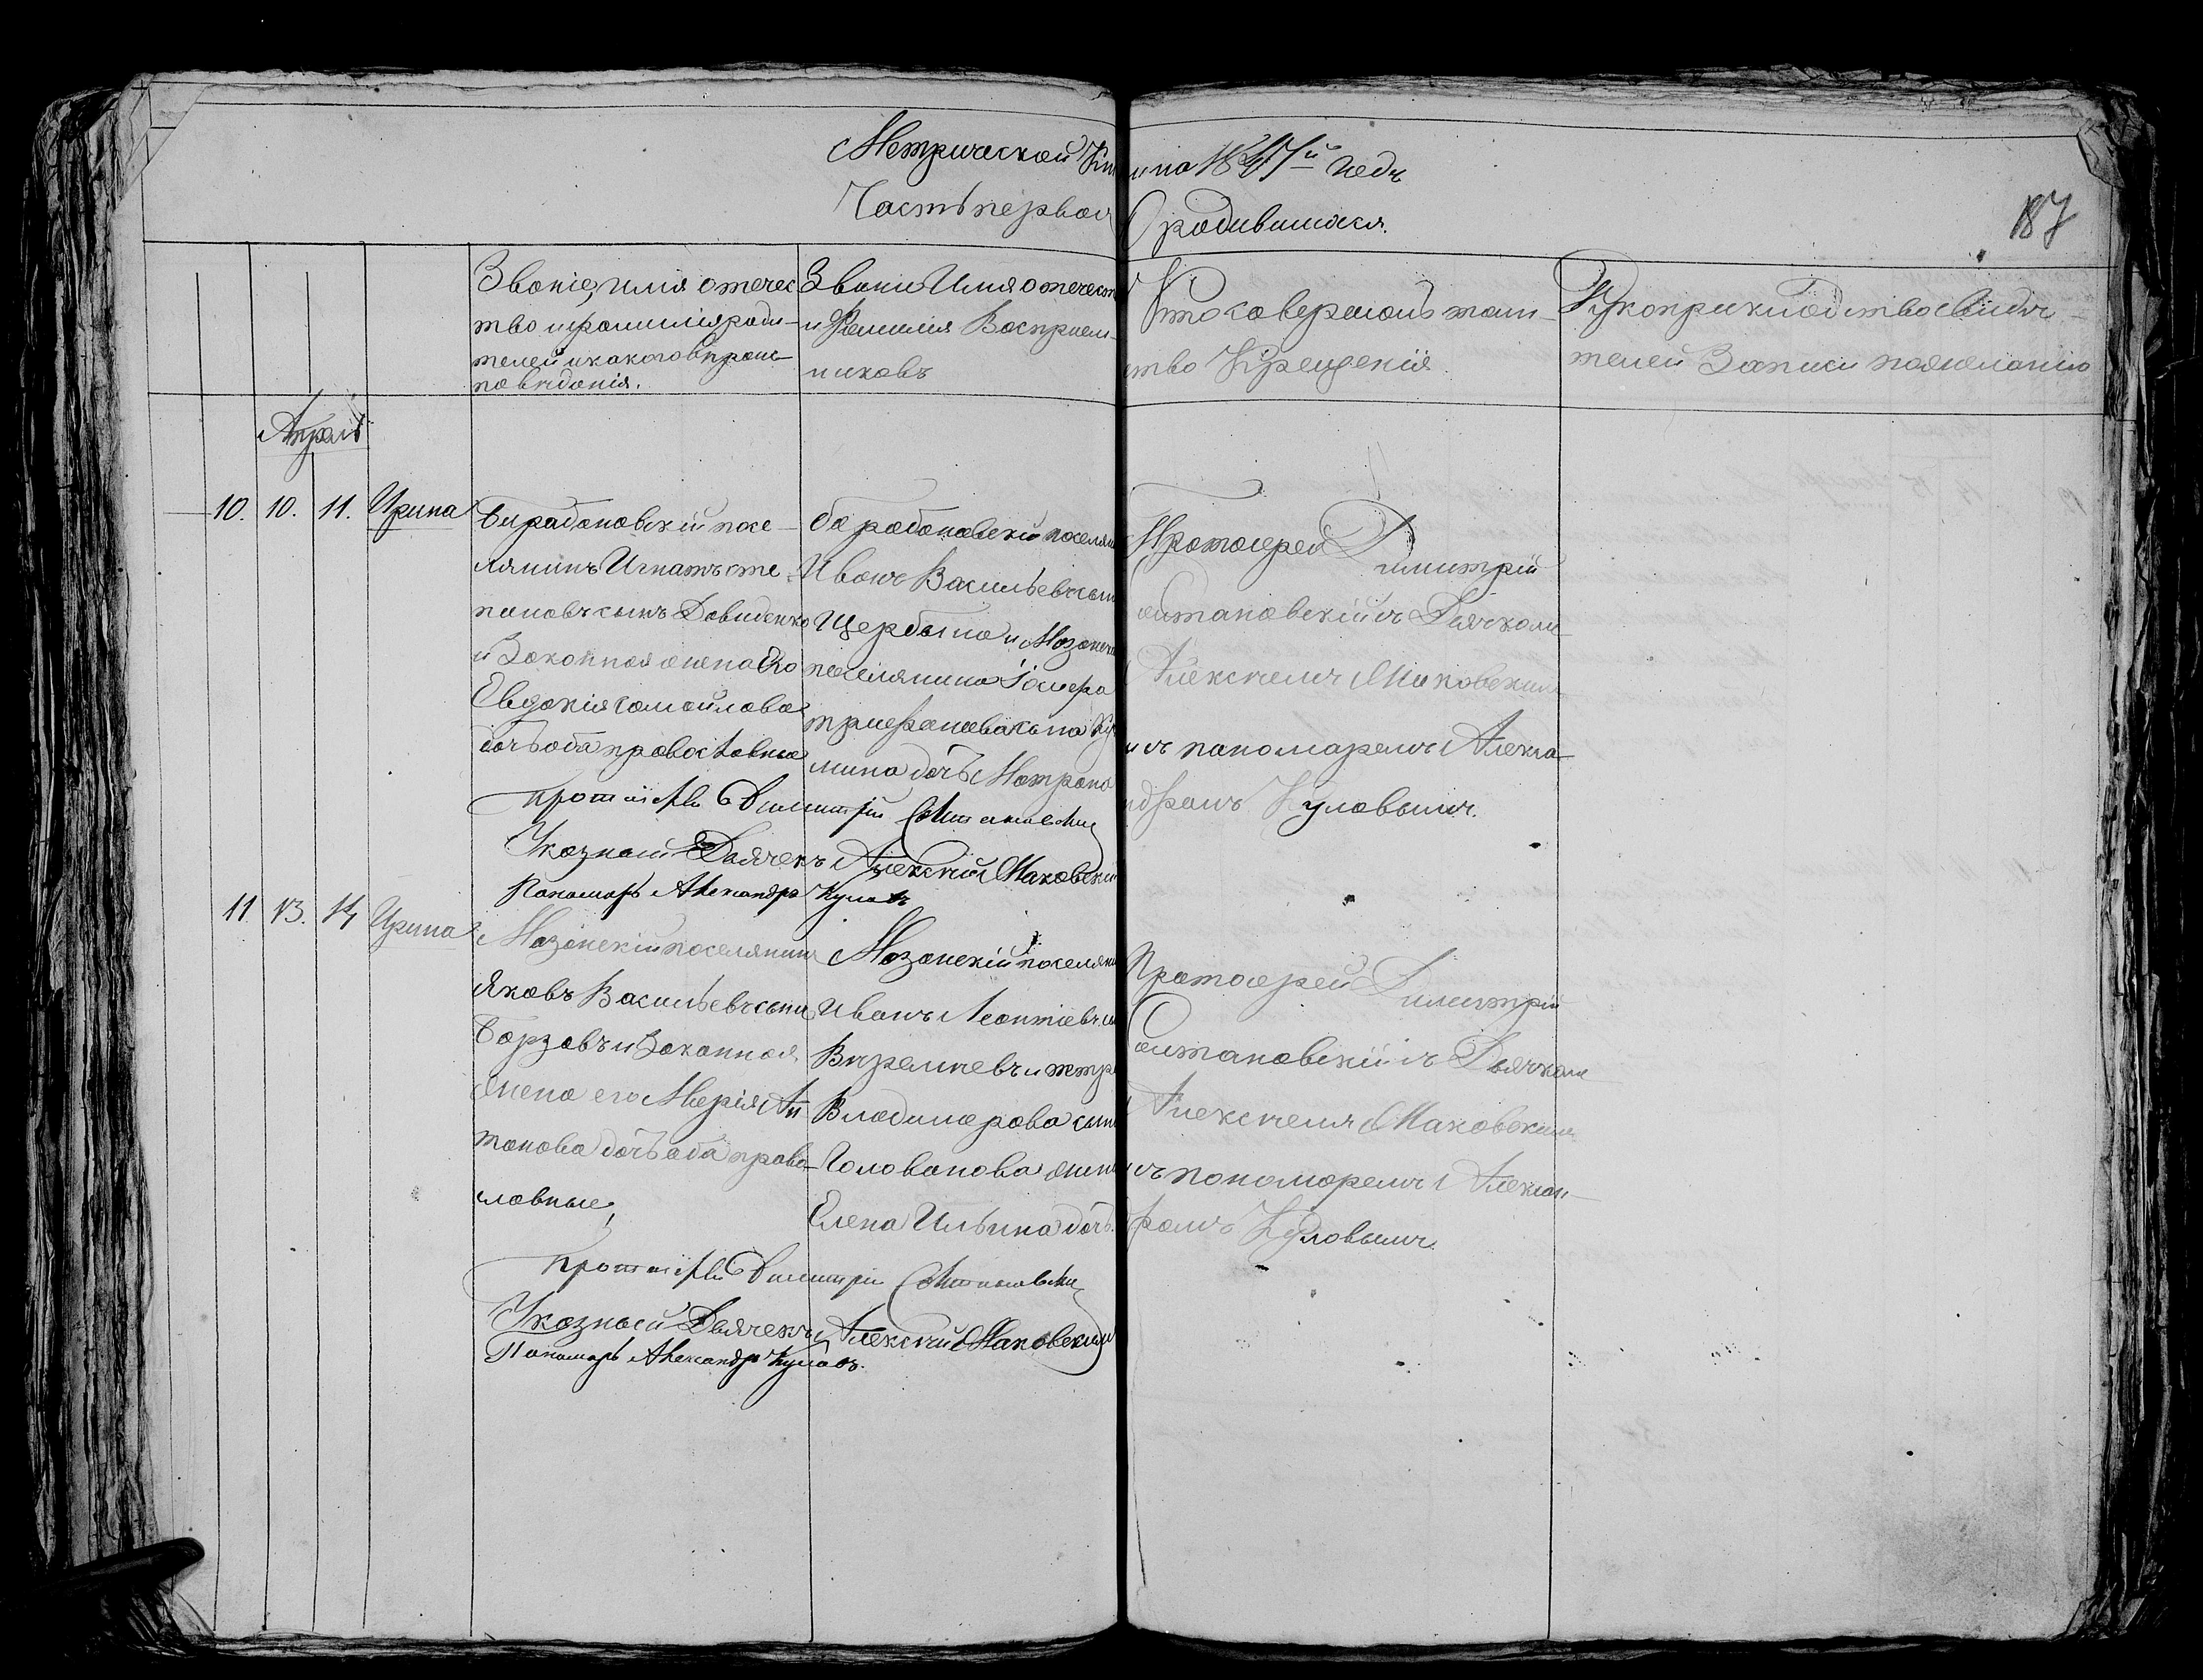 Метрической Кни
и на 1847й годъ
Часть первая
О родившихся.
187
Званіе, имя отечес
тво и фамилія роди-
телей и какого вѣроис-
повѣданія.
Званіе Имя отечест
и Фамилія Воспріем-
никовъ
Кто совершалъ таин-
ство Крещенія
Рукоприкладство свидѣ-
телей Записи по желанію
Апрель
10. 10. 11. Ирина
посе-
лянинъ Игнатъ Сте-
пановъ сынъ Давиденко
и Законная жена Его
Евдокія Самойлова
дочь оба православные
поселян
Иванъ Васильевъ сын
Щербина и Мазанск
поселянина
дочь Матрона
Протоіерей Димитрій
с Дьячкомъ
Алексѣемъ Маковскимъ
и съ пономаремъ Алекса-
ндромъ Куловымъ.
Протоіерей Димитрій
Указный Дьячекъ Алексѣй Маковскій
Пономарь Александръ Куловъ
11 13. 14 Ирина
Мазанскій поселянинъ
Яковъ Васильевъ сынъ
Борзовъ и Законная
жена его Марія Ан
тонова дочь оба право-
славные,
Мазанскій поселян
Иванъ Леонтіевъ сы
Владимерова сын
Голованова жен
Елена Ильина дочь.
Протоіерей Димитрій
съ Дьячкомъ
Алексѣемъ Маковскимъ
съ пономаремъ Алексан-
дромъ Куловымъ.
Протоіерей Димитрій
Указный Дьячекъ Алексѣй Маковскій
Пономарь Александръ Куловъ.